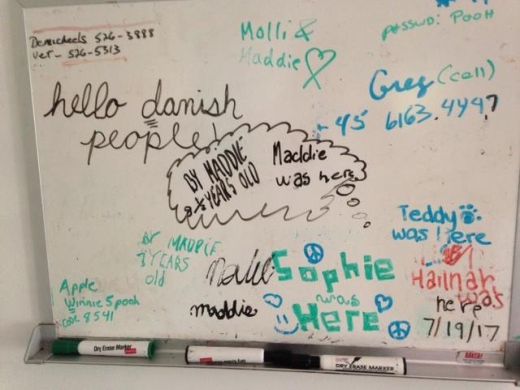 Demichaels 526-3888
Vet - 526-5313
Molli &
Maddie
passwd: Pooh
Greg (cell)
-45 6163.4447
hello danish
people!
BY MADDIE
YEARS OLD
Maddie
was here
BY MADDIE
YEARS
old
Apple
Winnie spooh
8541
maddie
Sophie
was
Here
Teddy
was Here
Hannah
was
here
7/19/17
Dry Erase Marker
DRY ERASE MARKER